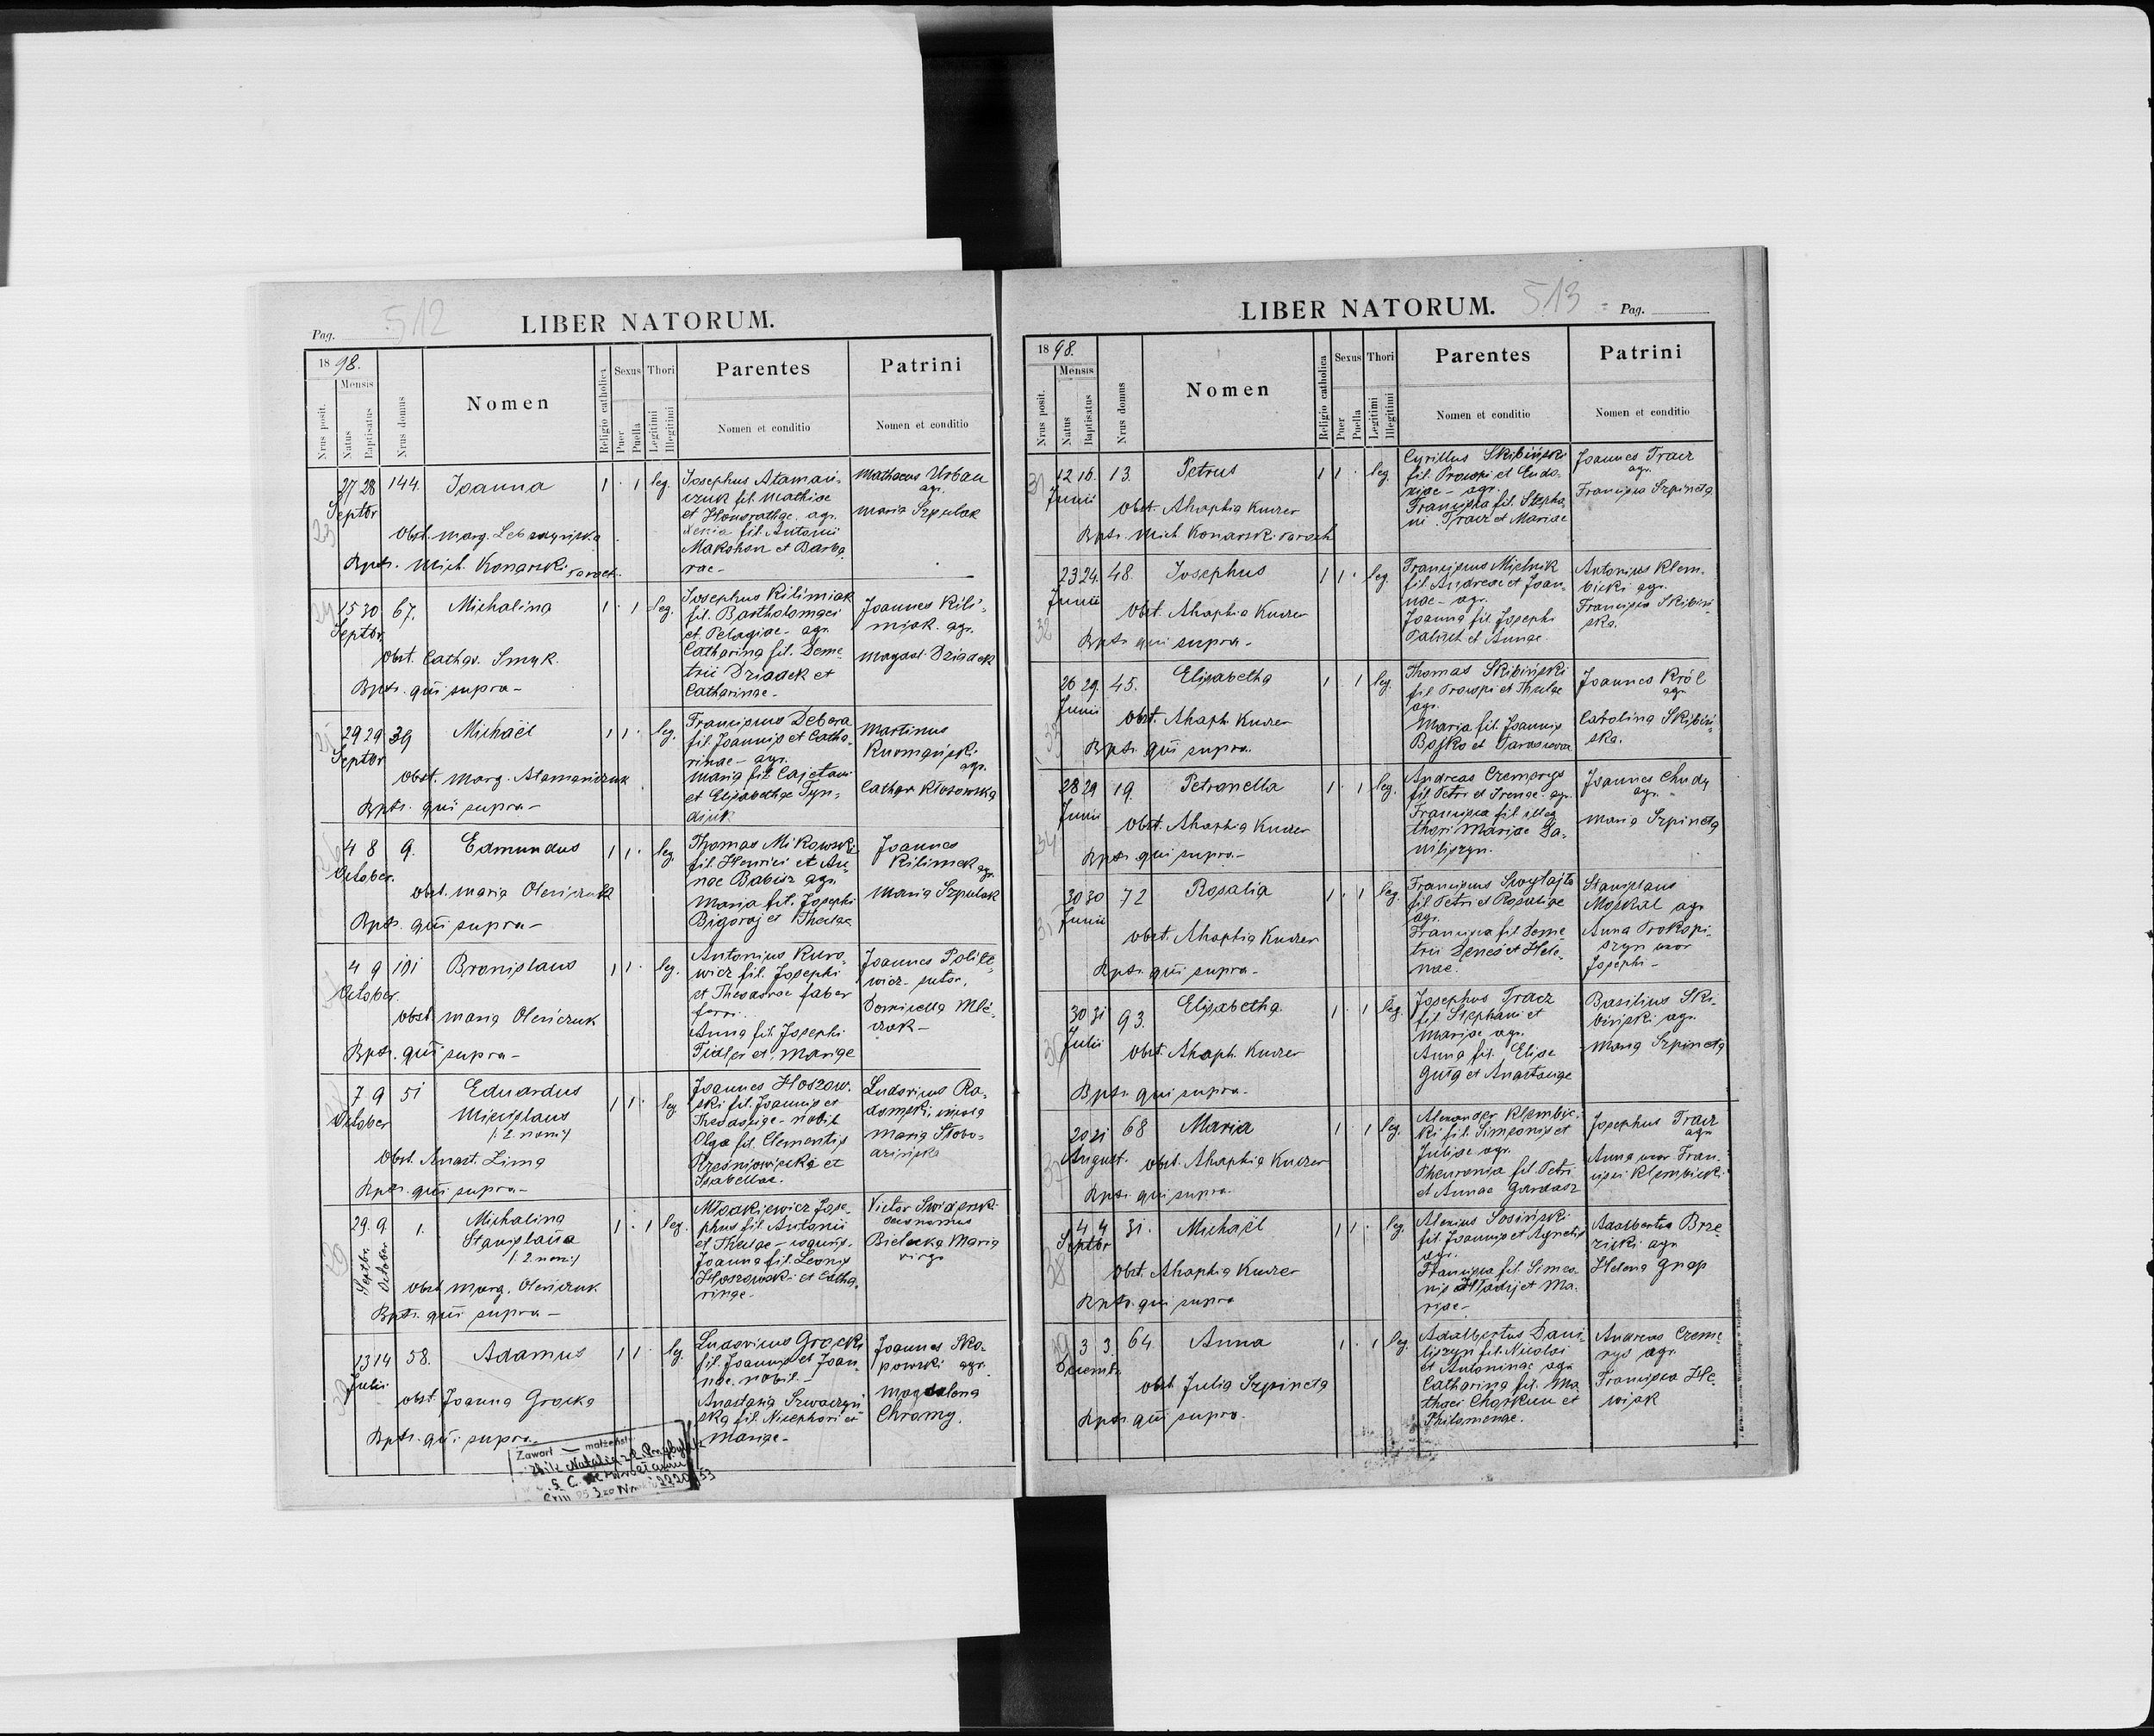 Pag. 512
LIBER NATORUM.
1898.
Mensis
Nrus posit.
Natus
Baptisatus
Nrus domus
Nomen
Religio catholica
Sexus
Puer
Puella
Thori
Legitimi
Illegitimi
Parentes
Nomen et conditio
Patrini
Nomen et conditio
27 28 144. Joanna 1 · 1 leg.
Septbr
Obst. Marg.
Bpts. Mich. Konarski paroch.
Josephus Atamań-
czuk fil. Mathiae
et Honorathae agr.
Xenia fil. Antonii
Makohon et Barba
rae -
Mathaeus Urban
agr.
Maria Szpulak
15 30 67. Michalina 1 · 1 leg.
Septbr
Obst. Cathar. Smyk.
Bpts. qui supra -
Josephus Kilimiak
fil. Bartholomaei
et Pelagiae - agr.
Catharina fil. Deme-
trii Dziadek et
Catharinae -
Joannes Kili-
miak. agr.
Magdal. Dziadek
29 29 39 Michaël 1 1 · leg.
Septbr
Obst. Marg. Atamańczuk
Bpts. qui supra -
Franciscus Debera
fil. Joannis et Catha-
rinae - agr.
Maria fil. Cajetani
et Elisabethae Tyn-
diuk
Martinus
Kurmański
agr.
Cathar Kłosowska
4 8 9. Edmundus 1 1 · leg.
October.
obst. Maria Oleńczuk
Bpts. qui supra -
Thomas Mikowski
fil. Henrici et An-
nae Babisz agr.
Maria fil. Josephi
Bigoraj et Theclae
Joannes
Kilimek agr.
Maria Szpulak
4 9 101 Bronislaus 1 1 · leg.
October.
obst. Maria Oleńczuk
Bpts. qui supra -
Antonius Kuro-
wicz fil. Josephi
et Theodorae faber
ferri.
Anna fil. Josephi
Fidler et Mariae
Joannes Polite-
wicz - sutor.
Dominella Mle-
czak -
7 9 51 Eduardus
October Miecislaus 1 1 · leg.
/: 2. nom:/
Obst. Anast. Zima
Bpts. qui supra -
Joannes Hoszow-
ski fil. Joannis et
Theodosiae - nobil
Olga fil. Clementis
Krześniowiecki et
Isabellae.
Ludovicus Ra-
domski
Maria Słobo-
dzińska
29. 9. 1. Michalina
Septbr. October Stanislaua 1 · 1 leg.
/: 2. nom:/
obst. Marg. Oleńczuk
Bpts. qui supra -
Josephus fil. Antonii
et Theclae -
Joanna fil. Leonis
Hoszowski et Catha-
rinae -
Victor
oeconomus
Bielecka Maria
virgo
13 14 58. Adamus 1 1 · leg.
Julii
obst Joanna Grocka
Bpts. qui supra -
Ludovicus Grocki
fil. Joannis et Joan-
nae. nobil. -
Anastasia
fil. Nicephori et
Mariae -
Joannes Sko-
powski agr.
Magdalena
Chromy.
Zawarł — małżeńst.
LIBER NATORUM. 513 Pag.
1898.
Mensis
Nrus posit.
Natus
Baptisatus
Nrus domus
Nomen
Religio catholica
Sexus
Puer
Puella
Thori
Legitimi
Illegitimi
Parentes
Nomen et conditio
Patrini
Nomen et conditio
31 12 16. 13. Petrus 1 1 · leg.
Junii
Obst. Ahaphia Kurzer
Bpts. Mich Konarski paroch
Cyrillus Skibiński
fil. Procopi et Eudo-
xiae - agr.
Francisca fil. Stepha-
ni Tracz et Mariae
Joannes Tracz
agr.
Francisca Szpineta
32 23 24. 48. Josephus 1 1 · leg.
Junii
Obst. Ahaphia Kurzer
Bpts qui supra -
Franciscus Mielnik
fil. Andreae et Joan-
nae - agr.
Joanna fil. Josephi
Paluch et Annae.
Antonius Klem-
bicki agr.
Francisca Skibiń-
ska.
33 26 29. 45. Elisabetha 1 · 1 leg.
Junii
Obst. Ahaph. Kurzer
Bpts. qui supra.
Thomas Skibiński
fil Procopi et Theclae
agr.
Maria fil. Joannis
Bojko et
Joannes Król
agr.
Carolina Skibiń-
ska.
34 28 29 19. Petronella 1 · 1 leg.
Junii
Obst. Ahaphia Kurzer
Bpts. qui supra -
Andreas Czemerys
fil Petri et Irenae agr.
Francisca fil illeg
thori Mariae Da-
niliszyn.
Joannes Chudy
agr.
Maria Szpineta
30 30 72 Rosalia 1 · 1 leg.
Junii
obst. Ahaphia Kurzer
Bpts. qui supra -
Franciscus
fil Petri et Rosaliae
agr.
Francisca fil Deme-
trii Denes et Hele-
nae.
Stanislaus
Moskal agr
Anna Prokopi-
szyn uxor
Josephi -
30 31 93. Elisabetha 1 · 1 leg.
Julii
Obst. Ahaph. Kurzer
Bpts. qui supra -
Josephus Tracz
fil Stephani et
Mariae agr.
Anna fil. Eliae
et Anastasiae
Basilius Ski-
biński agr.
Maria Szpineta
37 20 21 68 Maria 1 · 1 leg.
August.
obst. Ahaphia Kurzer
Bpts. qui supra -
Alexander Klembic-
ki fil. Simeonis et
Juliae agr.
fil. Petri
et Annae Gardasz
Josephus Tracz
agr
Anna uxor Fran-
cisci Klembicki
38 4 4 31. Michaël 1 1 · leg.
Septbr
Obst. Ahaphia Kurzer
Bpts. qui supra
Alexius Sosiński
fil. Joannis et Agnetis
agr.
Francisca fil. Simeo-
nis et Ma-
riae -
Adalbertus Brze-
zicki agr
Helena Gnap
39 3 3. 64 Anna 1 · 1 leg.
Decembr
obst. Julia Szpineta
Bpts. qui supra.
Adalbertus Dani-
liszyn fil. Nicolai
et Antoninae agr
Catharina fil. Ma-
thaei et
Philomenae.
Andreas Czeme-
rys agr.
Francisca He-
wjak